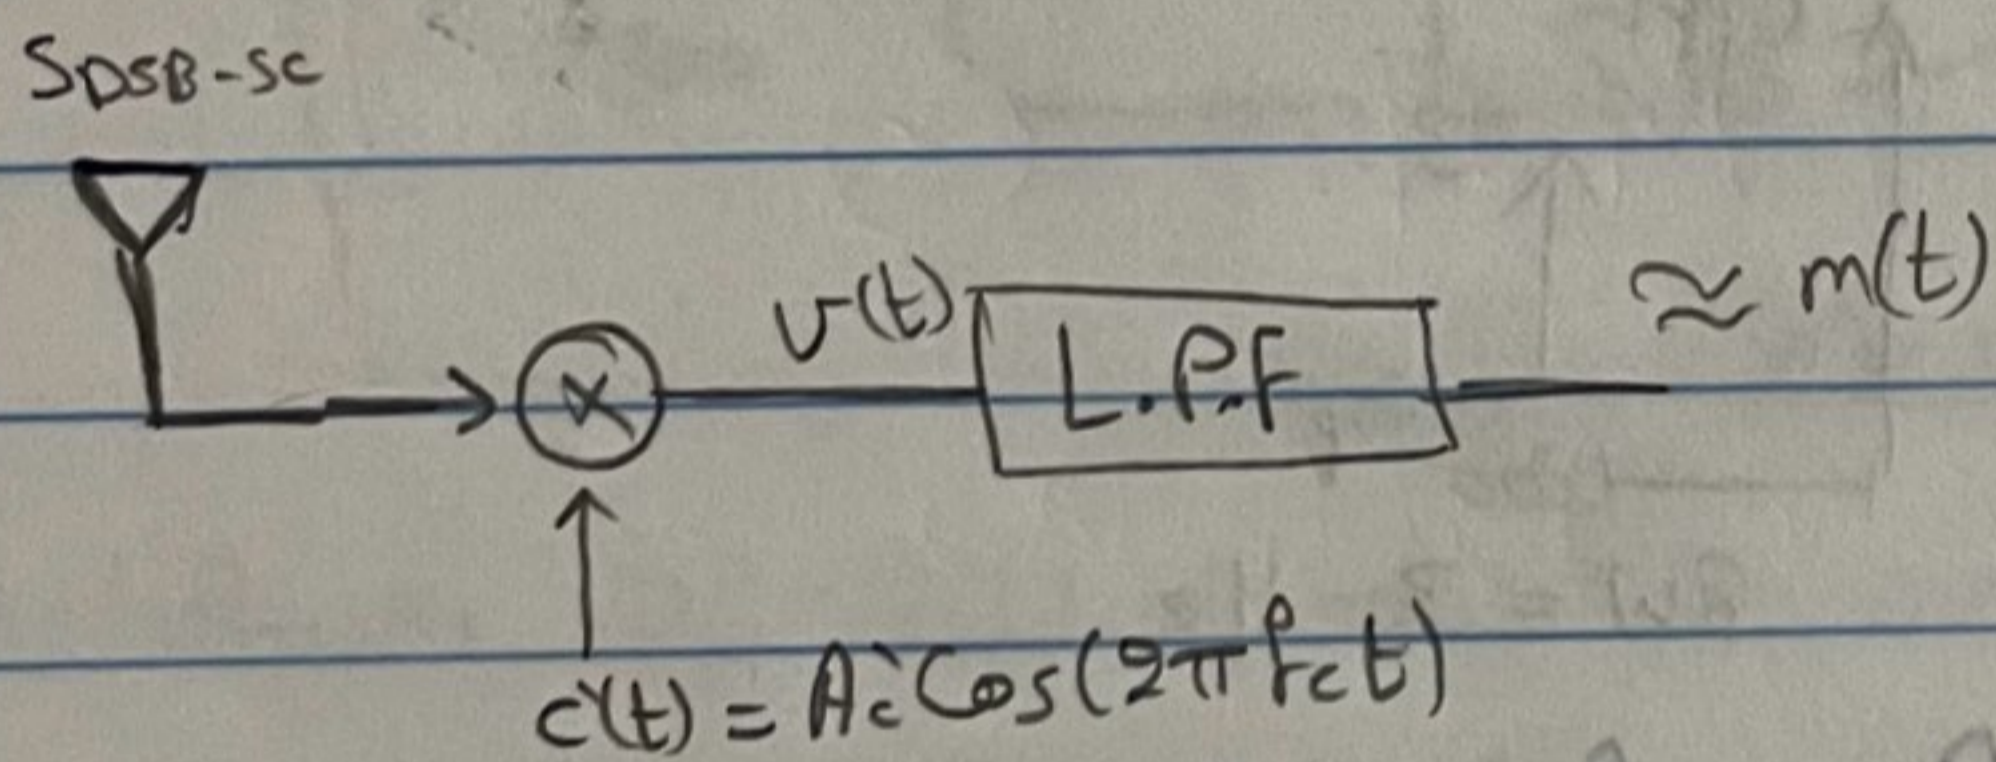 SDSB-SC
v(t)
L.P.F
≈ m(t)
c'(t) = Ac' Cos(2πfct)